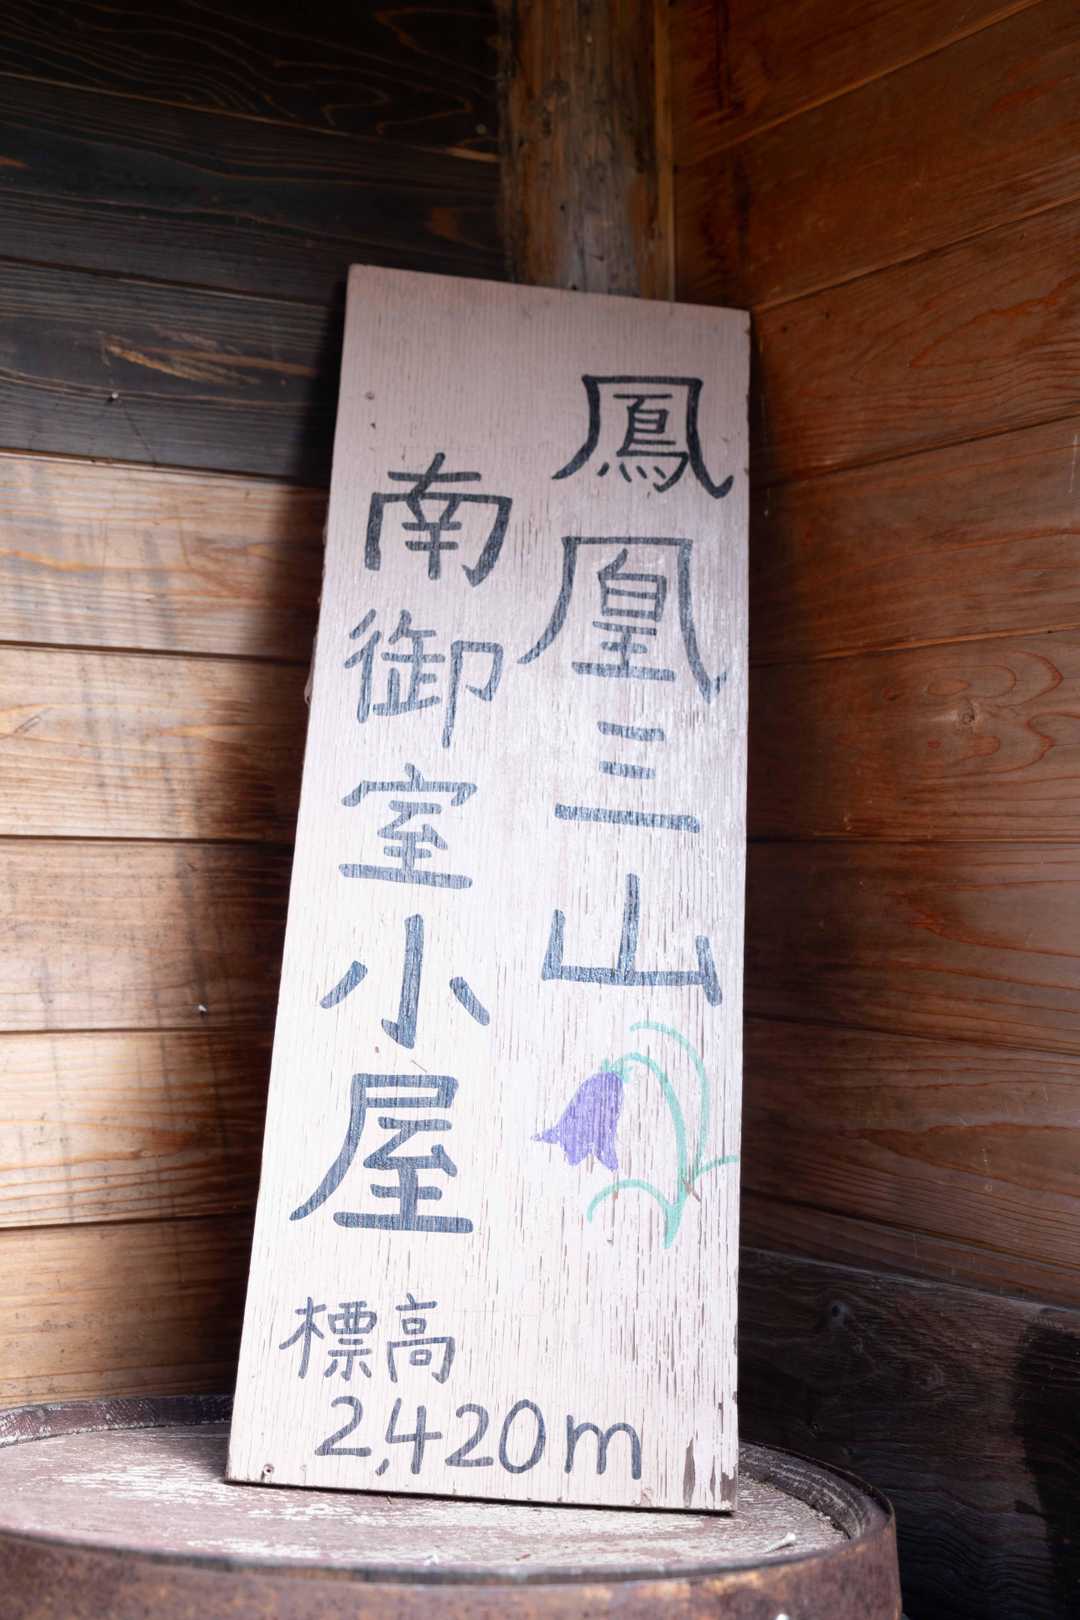 鳳凰三山
南御室小屋
標高
2,420m